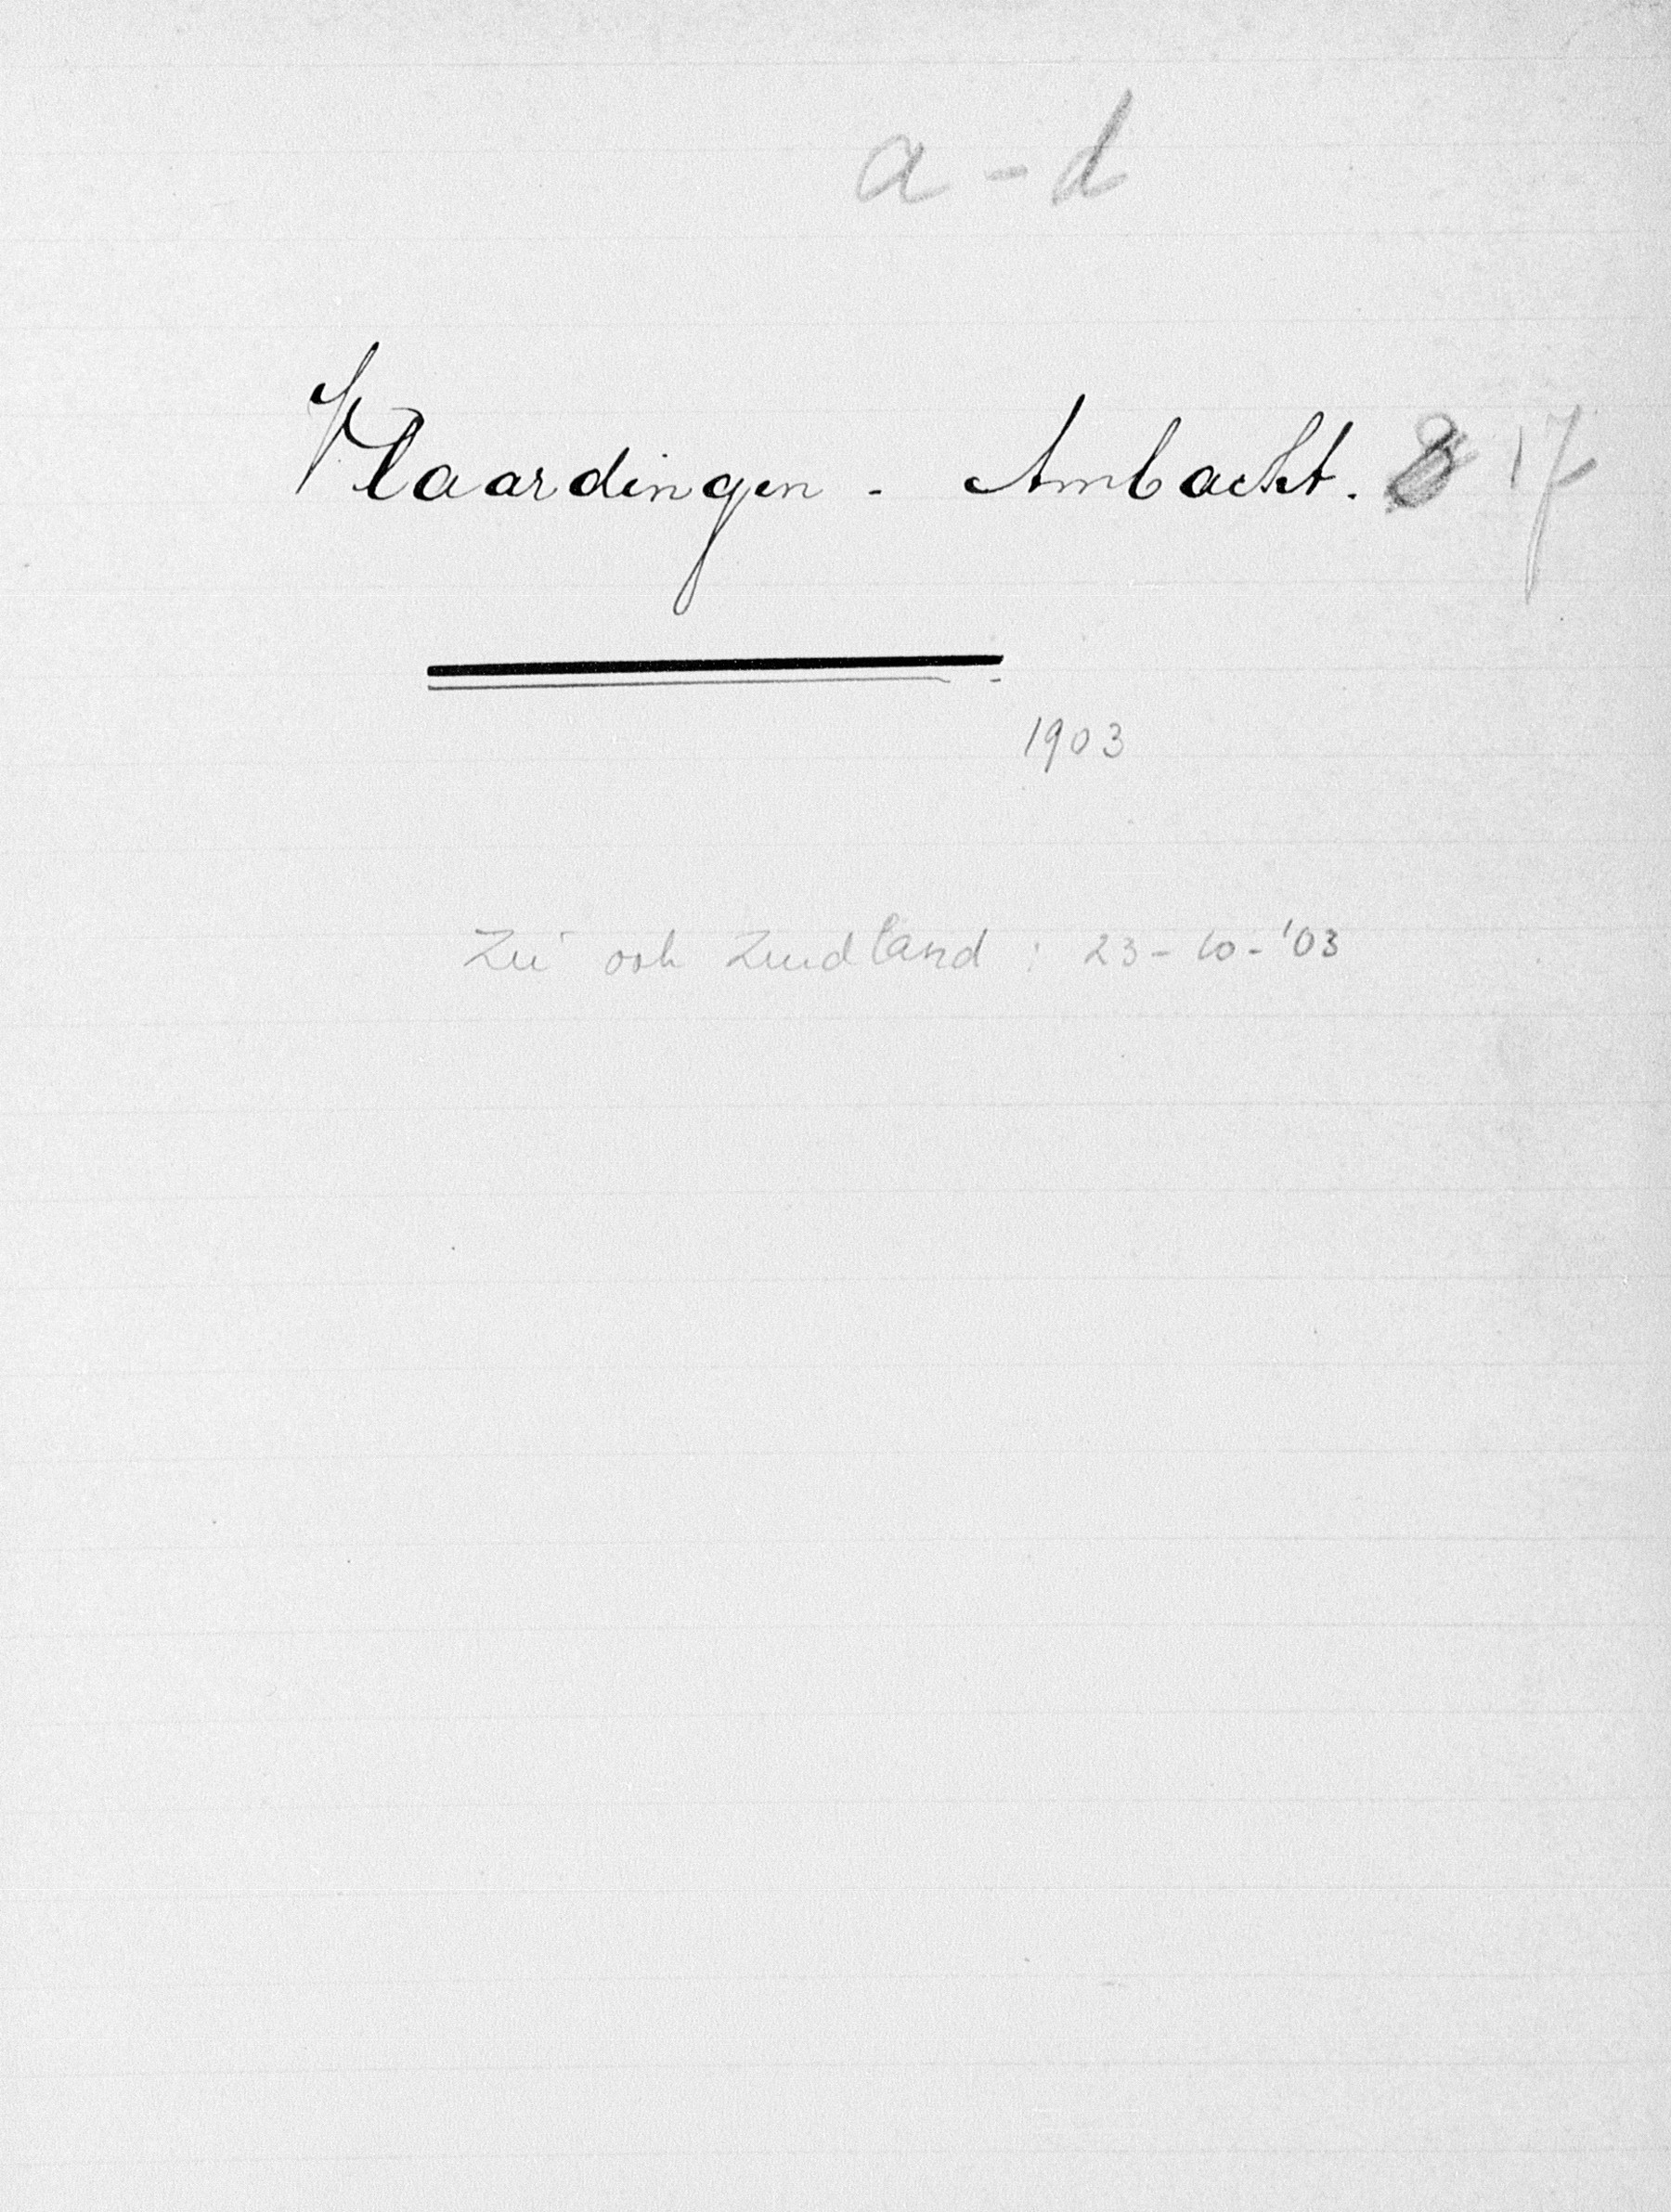 a - d
Vlaardingen - Ambacht. 17
1903
Zie ook Zuidland : 23-10-'03